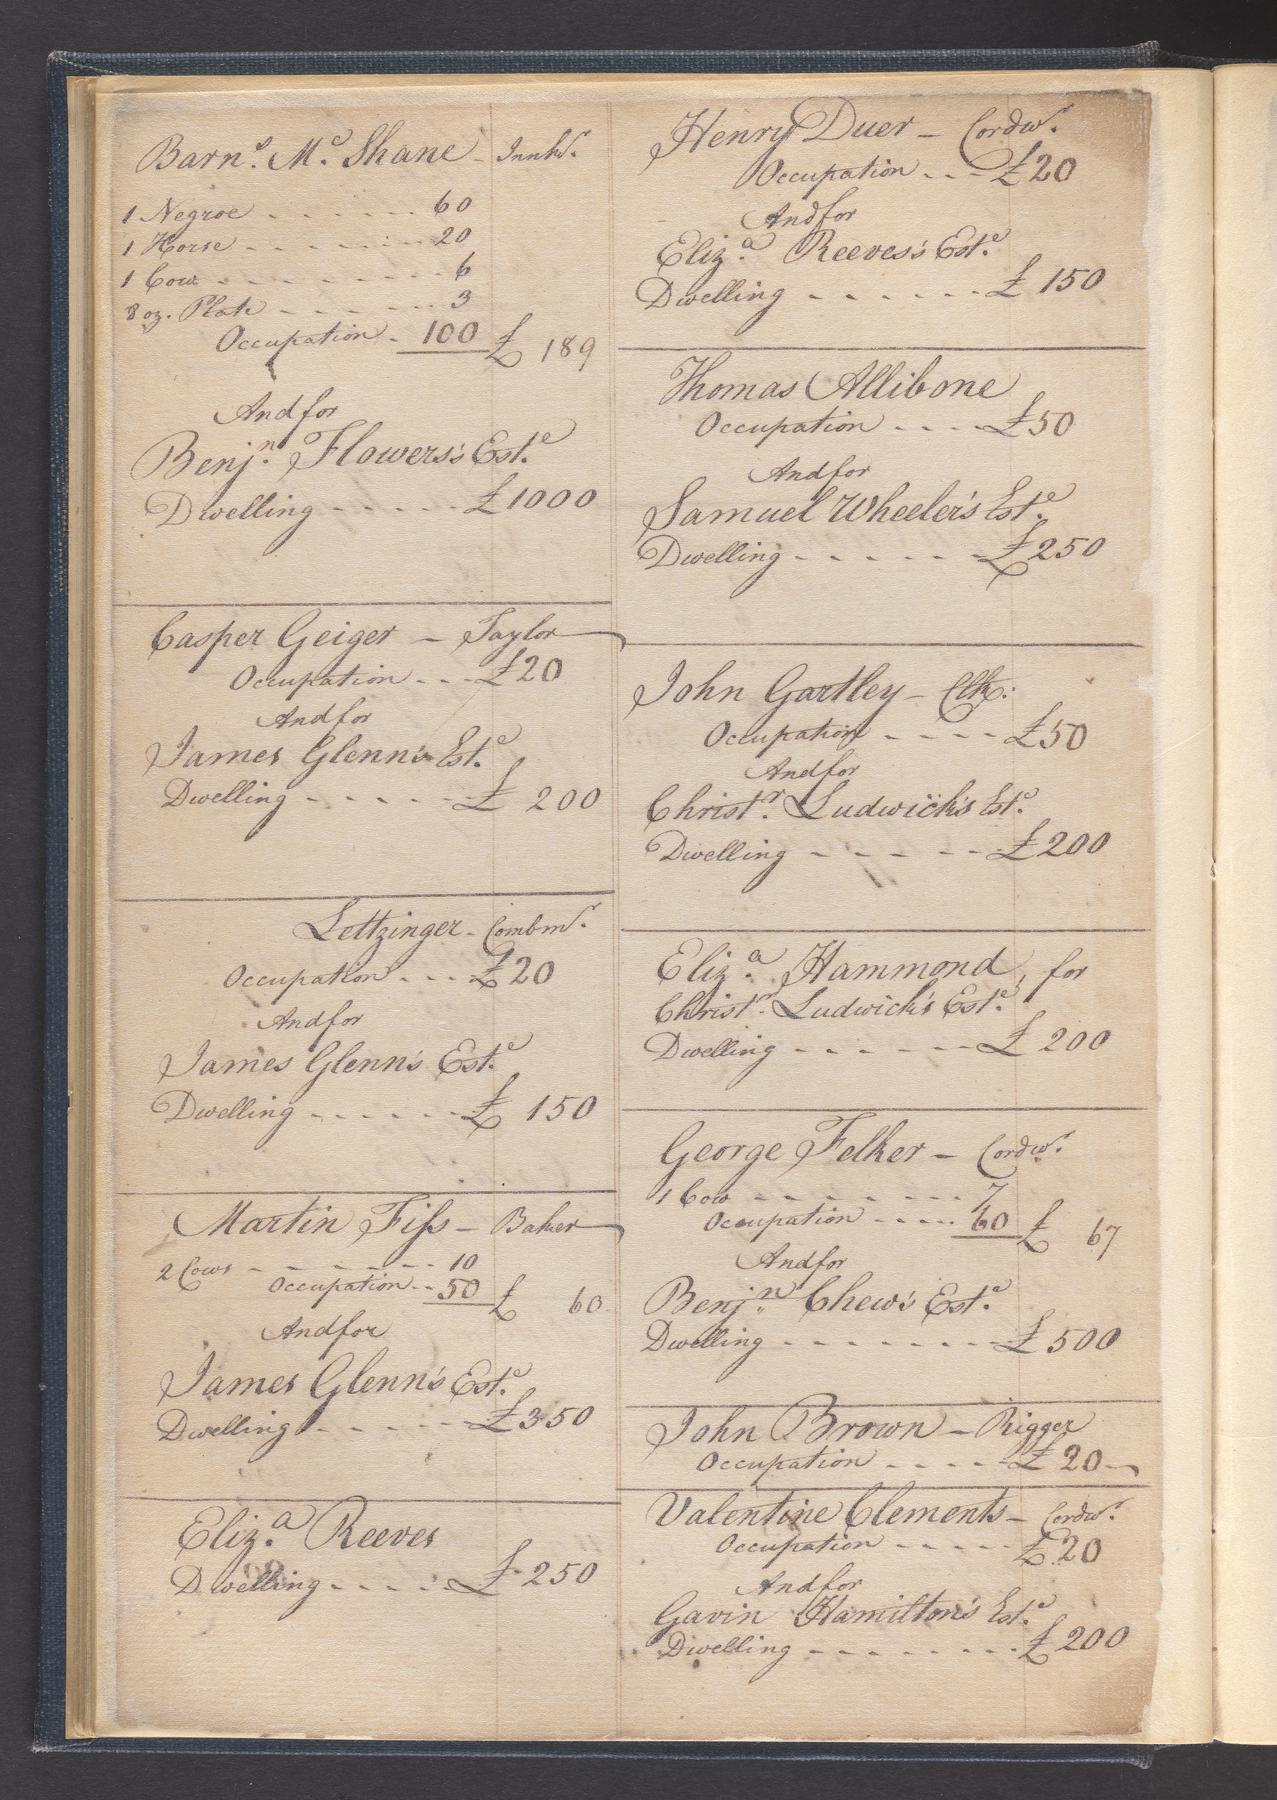 Barn.ᵈ Mᶜ. Shane - Innkʳ.
1 Negroe - - - - - - 60
1 Horse - - - - - - 20
1 Cow - - - - - - 6
8 oz. Plate - - - - - - 3
Occupation - 100 £ 189
And for
Benj.ⁿ Flowers's Est.ᵉ
Dwelling - - - - - £1000
Casper Geiger - Taylor
Occupation - - - £20
And for
James Glenn's Est.ᵉ
Dwelling - - - - - £ 200
Lettzinger - Combmʳ.
Occupation - - - £20
And for
James Glenn's Est.ᵉ
Dwelling - - - - - £ 150
Martin Fiſs - Baker
2 Cows - - - - - - 10
Occupation - - 50 £ 60
And for
James Glenn's Est.ᵉ
Dwelling - - - - - £350
Eliz.ᵃ Reeves
Dwelling - - - - - £ 250
Henry Duer - Cordwʳ.
Occupation - - - £20
And for
Eliz.ᵃ Reeves's Est.ᵉ
Dwelling - - - - - - £ 150
Thomas Allibone
Occupation - - - - £50
And for
Samuel Wheeler's Est.ᵉ
Dwelling - - - - - - £250
John Gartley - Clk.
Occupation - - - - £50
And for
Christ.ʳ Ludwick's Est.ᵉ
Dwelling - - - - - £200
Eliz.ᵃ Hammond, for
Christ.ʳ Ludwick's Est.ᵉ
Dwelling - - - - - - £ 200
George Felker - Cordwʳ.
1 Cow - - - - - - - 7
Occupation - - - - 60 £ 67
And for
Benj.ⁿ Chew's Est.ᵉ
Dwelling - - - - - - - £500
John Brown - Rigger
Occupation - - - - - £ 20
Valentine Clements - Cordwʳ.
Occupation - - - - - £20
And for
Gavin Hamilton's Est.ᵉ
Dwelling - - - - - - - £200